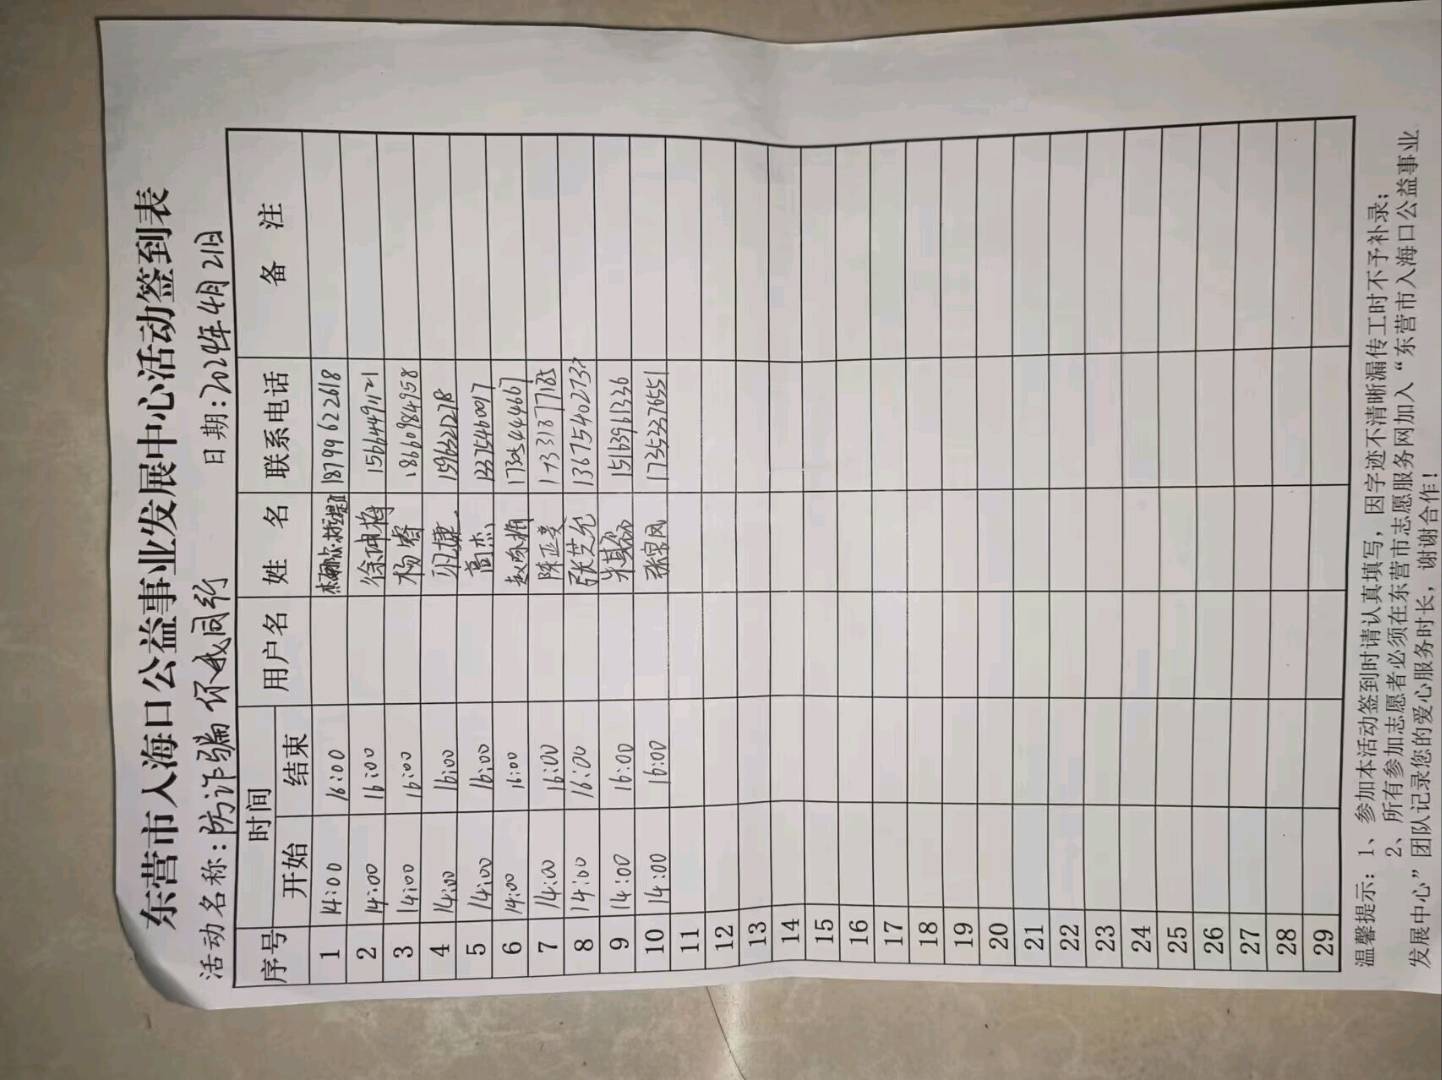 东营市入海口公益事业发展中心活动签到表
活动名称:防诈骗 你我同行 日期:2024年4月21日
序号 时间 用户名 姓 名 联系电话 备 注
开始 结束
1 14:00 16:00 18799622618
2 14:00 16:00 徐坤梅 15664491121
3 14:00 16:00 杨睿 18660984958
4 14:00 16:00
5 14:00 16:00 高杰 13375460097
6 14:00 16:00
7 14:00 16:00 陈正美 17331877185
8 14:00 16:00 张芝允
9 14:00 16:00
10 14:00 16:00 17353376551
11
12
13
14
15
16
17
18
19
20
21
22
23
24
25
26
27
28
29
温馨提示:1、参加本活动签到时请认真填写,因字迹不清晰漏传工时不予补录;
2、所有参加志愿者必须在东营市志愿服务网加入“东营市入海口公益事业
发展中心”团队记录您的爱心服务时长,谢谢合作!